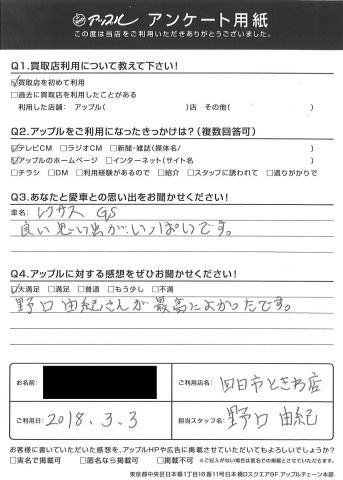 アップル アンケート用紙
この度は当店をご利用いただきありがとうございました。
Q1.買取店利用について教えて下さい!
☑買取店を初めて利用
□過去に買取店を利用したことがある
利用した店舗: アップル( )店 その他( )
Q2.アップルをご利用になったきっかけは?(複数回答可)
☑テレビCM □ラジオCM □新聞・雑誌(媒体名/ )
☑アップルのホームページ □インターネット(サイト名 )
□チラシ □DM □利用経験があるので □紹介 □スタッフに誘われて □通りがかりで
Q3.あなたと愛車との思い出をお聞かせください!
車名: レクサス GS
良い思い出が、いっぱいです。
Q4.アップルに対する感想をぜひお聞かせください!
☑大満足 □満足 □普通 □もう少し □不満
野口由紀さんが最高によかったです。
お名前:
ご利用店名: 四日市ときわ店
ご利用日: 2018.3.3
担当スタッフ名: 野口 由紀
お客様に書いていただいた感想を、アップルHPや広告に掲載させていただいてもよろしいでしょうか?
□実名で掲載可 □匿名なら掲載可 □掲載不可 ※ご記入がない場合は匿名での掲載とさせていただきます。
東京都中央区日本橋1丁目16番11号日本橋Dスクエア9F アップルチェーン本部